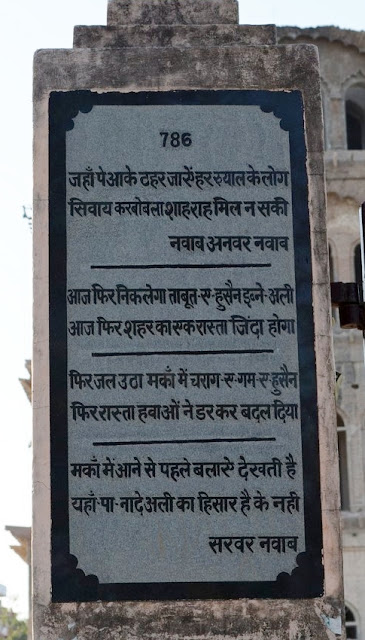 786
जहाँ पे आके ठहर जाएें हर ख़्याल के लोग
सिवाय करबोबला शाहराह मिल न सकी
नवाब अनवर नवाब
आज फिर निकलेगा ताबूत-ए-हुसैन इब्ने-अली
आज फिर शहर का एक रास्ता ज़िंदा होगा
फिर जल उठा मकाँ में चराग-ए-गम-ए-हुसैन
फिर रास्ता हवाओं ने डर कर बदल दिया
मकाँ में आने से पहले बलाएें देखती है
यहाँ-पा-नादे अली का हिसार है के नही
सरवर नवाब